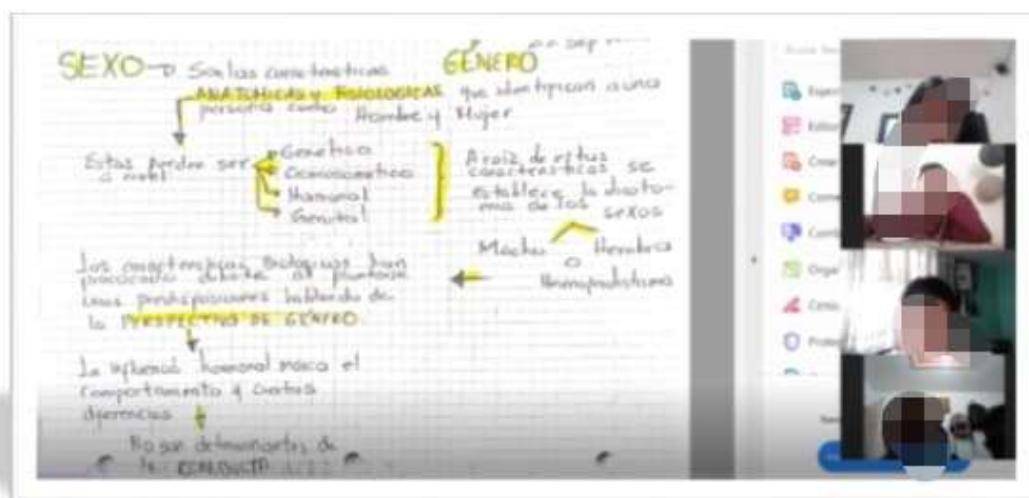 GÉNERO
SEXO → Son las características
ANATÓMICAS y FISIOLÓGICAS que identifican a una
persona como Hombre y Mujer
Estas pueden ser
a nivel
Genético
Cromosomático
Hormonal
Genital
A raíz de estas
características se
establece la dicoto-
mía de los sexos
Macho Hembra
o
Hermafroditismo
Las características Biológicas han
provocado debate al plantear
unas predisposiciones hablando de
la PERSPECTIVA DE GÉNERO
La influencia hormonal marca el
comportamiento y ciertas
diferencias
No son determinantes de
la CONDUCTA
Editar